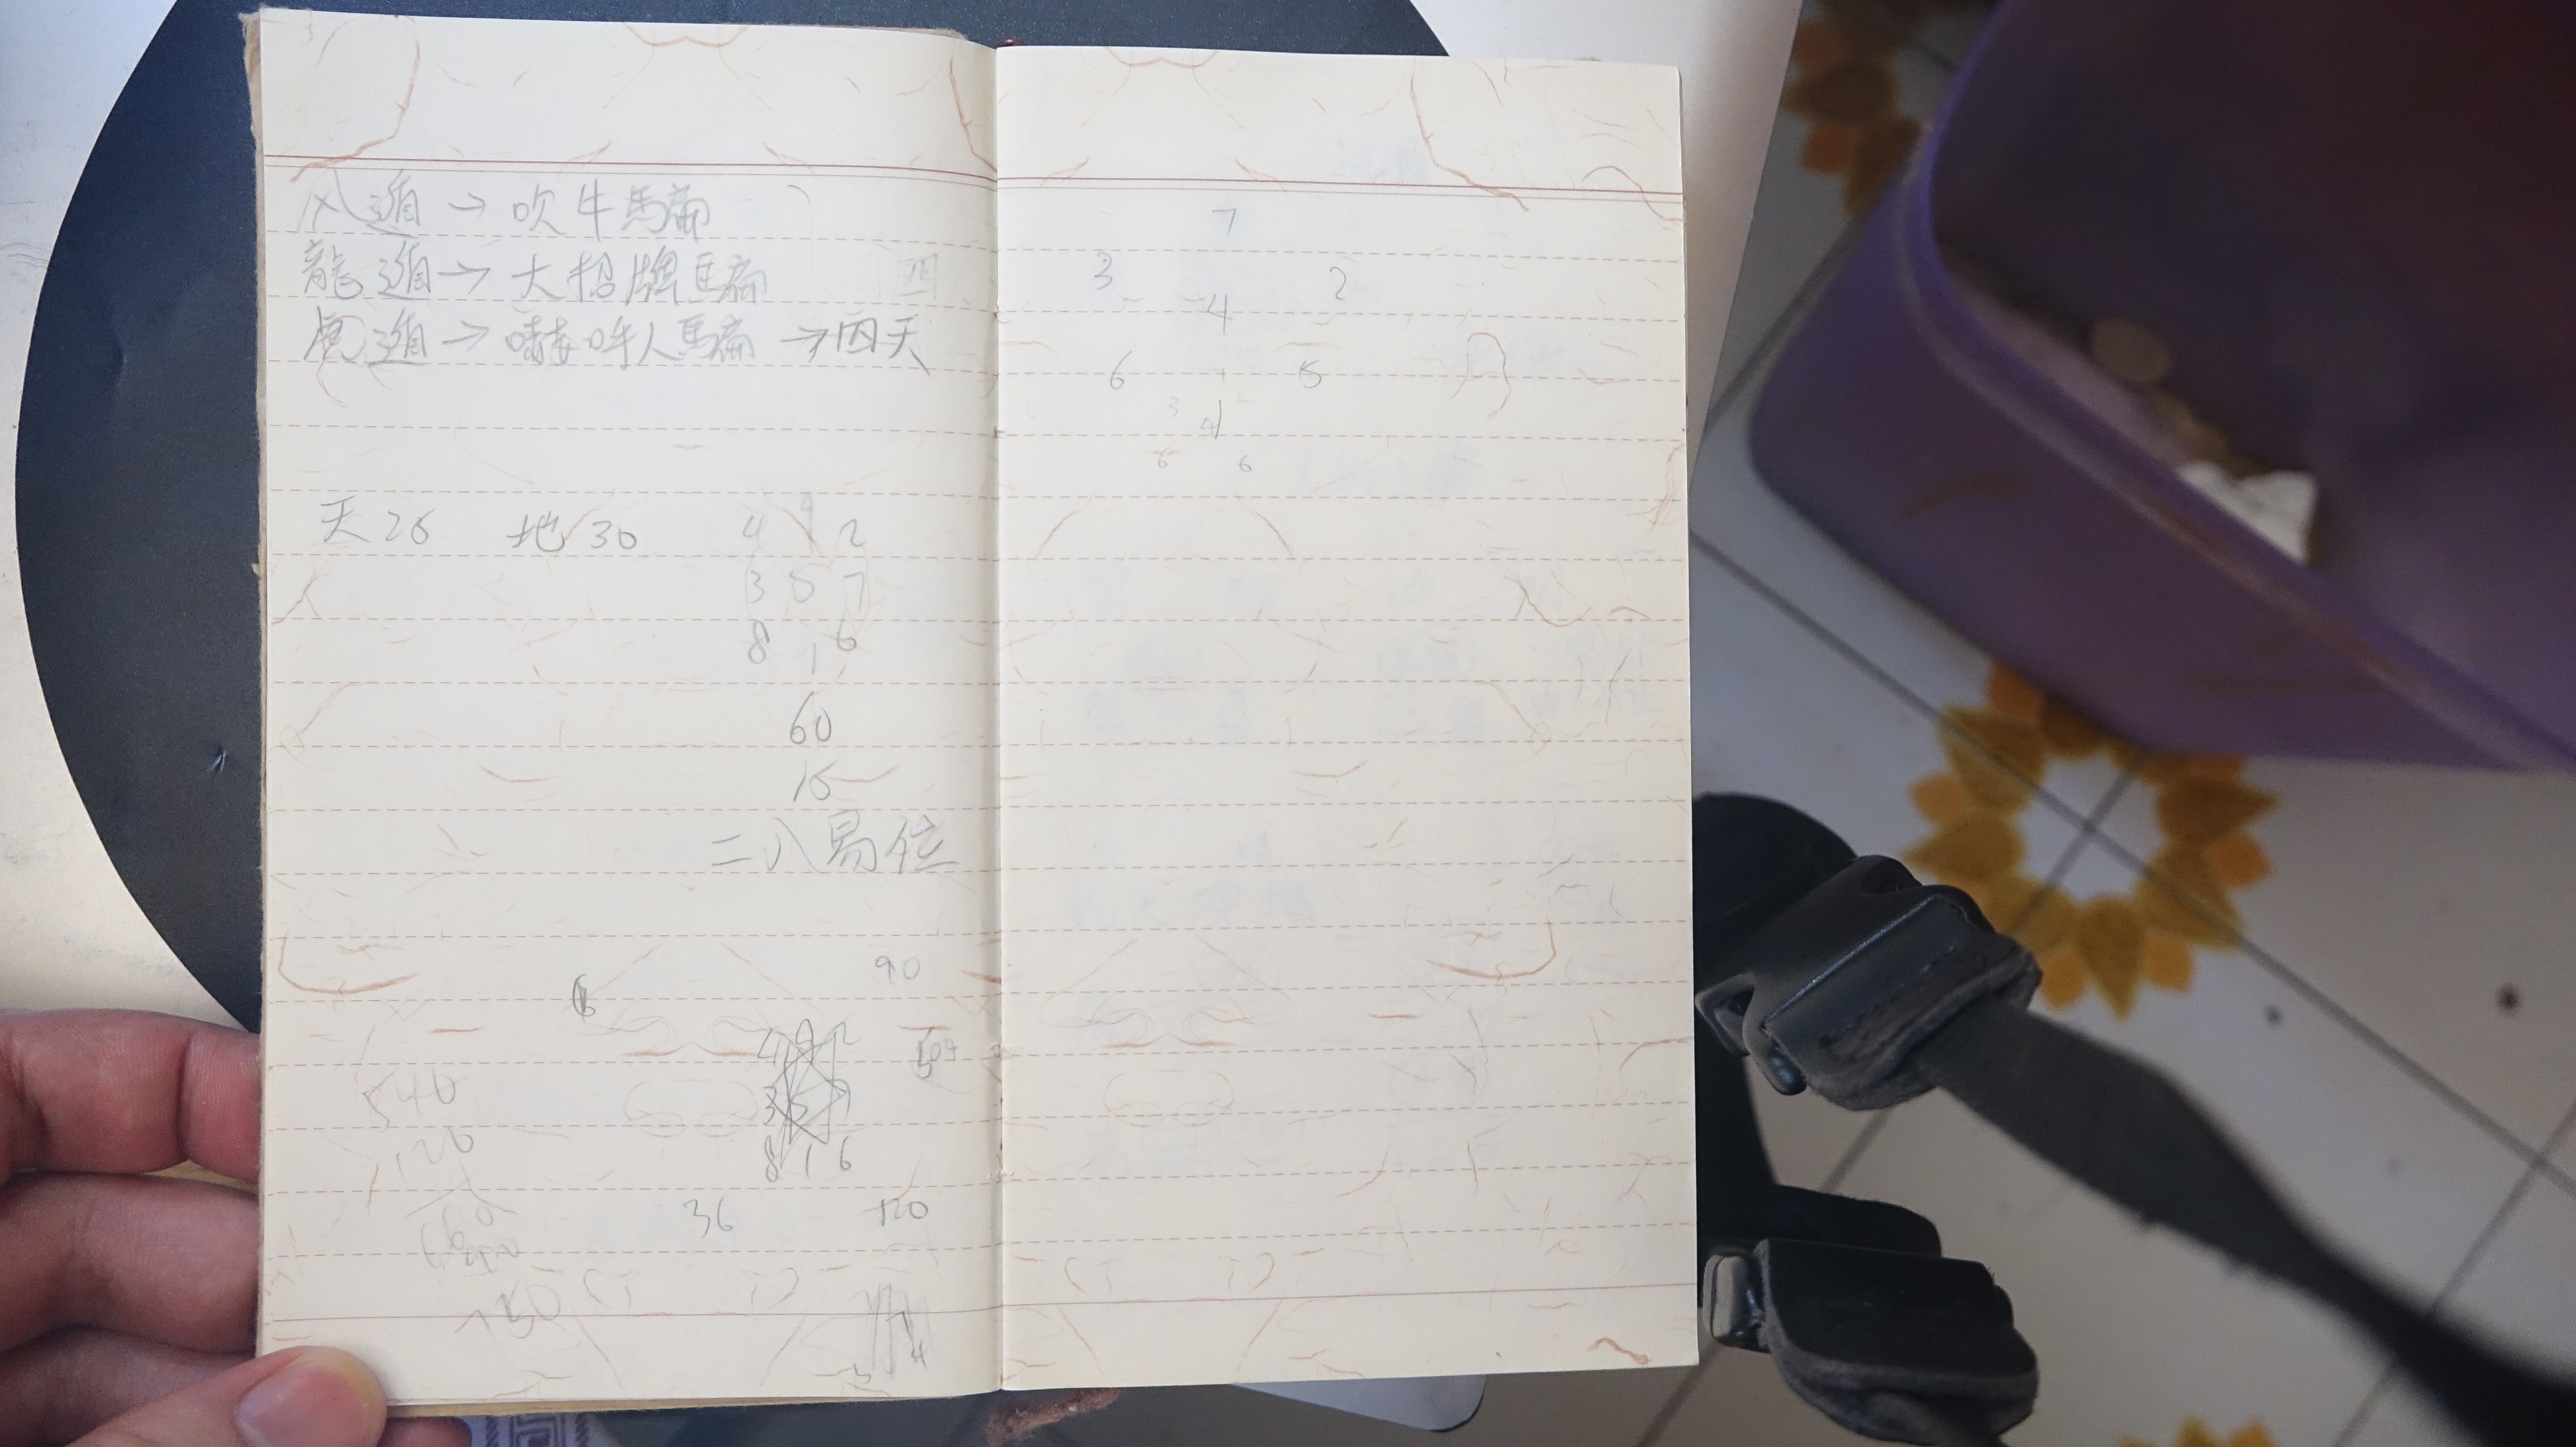 風遁→吹牛馬扁
龍遁→大招牌馬扁
虎遁→嚇唬人馬扁→四天
天26 地30
4 9 2
3 5 7
8 1 6
60
15
二八易位
90
4 9 2
3 5 7
8 1 6
540
120
660
36
120
7
3 2
4
6 5
3 2
4
6 6